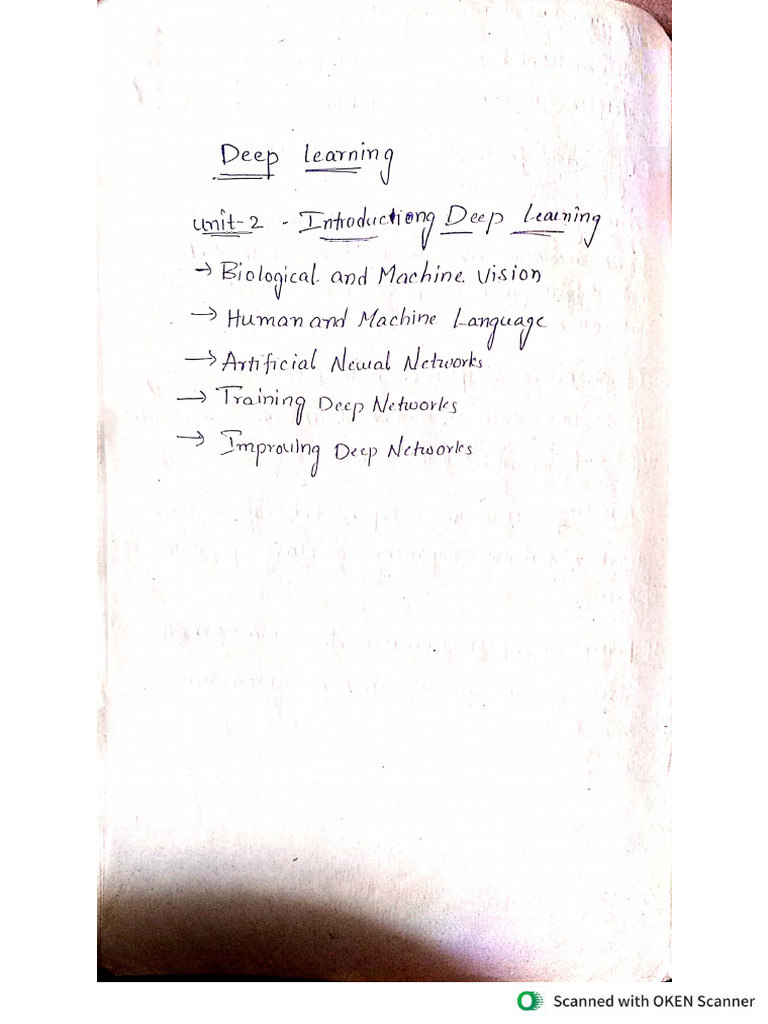 Deep Learning
Unit-2 - Introductiong Deep Learning
→ Biological and Machine Vision
→ Human and Machine Language
→ Artificial Neural Networks
→ Training Deep Networks
→ Improving Deep Networks
Scanned with OKEN Scanner